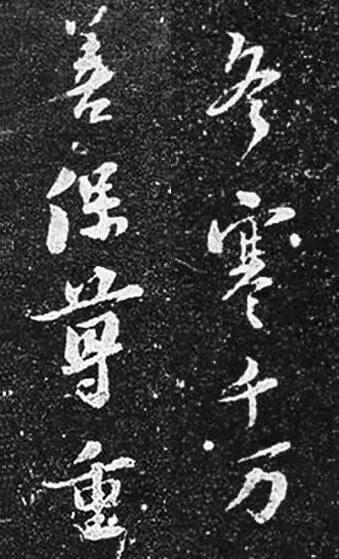 冬寒千万
善保尊重